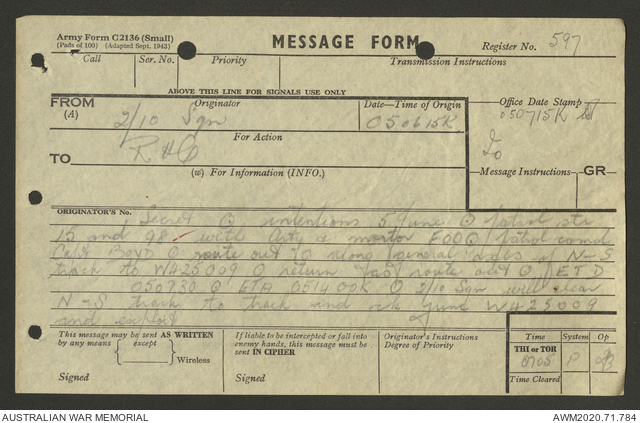 Army Form C2136 (Small)
(Pads of 100) (Adapted Sept. 1943)
MESSAGE FORM
Register No. 597
Call Ser. No. Priority Transmission Instructions
ABOVE THIS LINE FOR SIGNALS USE ONLY
FROM
(A)
Originator
2/10 Sqn
Date—Time of Origin
050615K
Office Date Stamp
050715K
For Action
TO
RHQ
(W) For Information (INFO.)
Message Instructions GR
ORIGINATOR'S No.
Secret O intentions 5 June O patrol str
15 and 98 with arty & mortar FOOO patrol comd
Capt BOYD O route out O along general axis of N-S
track to WA425009 O return as route out O ETD
050730 O ETA 051400K O 2/10 Sqn will clear
N-S track to track and junc WA425009
and exploit
This message may be sent AS WRITTEN
by any means except
Wireless
Signed
If liable to be intercepted or fall into
enemy hands, this message must be
sent IN CIPHER
Signed
Originator's Instructions
Degree of Priority
Time System Op
THI or TOR
0705 P
Time Cleared
AUSTRALIAN WAR MEMORIAL
AWM2020.71.784